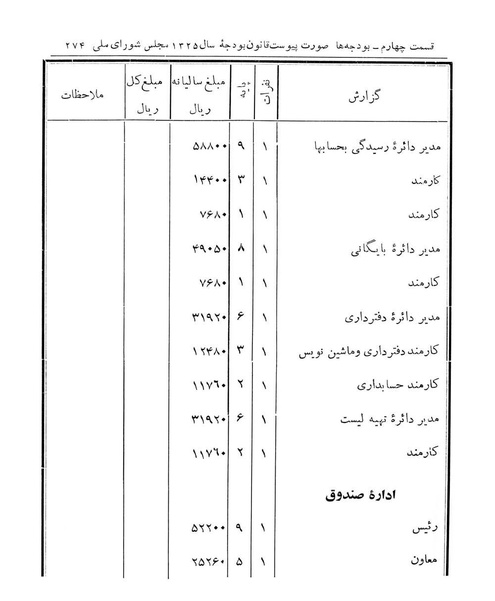 قسمت چهارم ـ بودجه‌ها صورت پیوست قانون بودجهٔ سال ۱۳۲۵ مجلس شورای ملی ۲۷۴
گزارش نفرات پایه مبلغ سالیانه ریال مبلغ کل ریال ملاحظات
مدیر دائرهٔ رسیدگی بحسابها ۱ ۹ ۵۸۸۰۰
کارمند ۱ ۳ ۱۴۴۰۰
کارمند ۱ ۱ ۷۶۸۰
مدیر دائرهٔ بایگانی ۱ ۸ ۴۹۰۵۰
کارمند ۱ ۱ ۷۶۸۰
مدیر دائرهٔ دفترداری ۱ ۶ ۳۱۹۲۰
کارمند دفترداری و ماشین نویس ۱ ۳ ۱۲۴۸۰
کارمند حسابداری ۱ ۲ ۱۱۷۶۰
مدیر دائرهٔ تهیه لیست ۱ ۶ ۳۱۹۲۰
کارمند ۱ ۲ ۱۱۷۶۰
ادارهٔ صندوق
رئیس ۱ ۹ ۵۲۲۰۰
معاون ۱ ۵ ۲۵۲۶۰